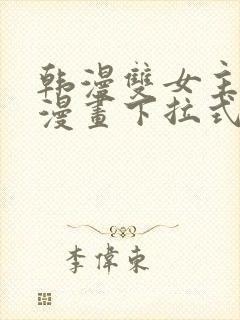 韩漫雙女主
漫畫下拉式
李偉東